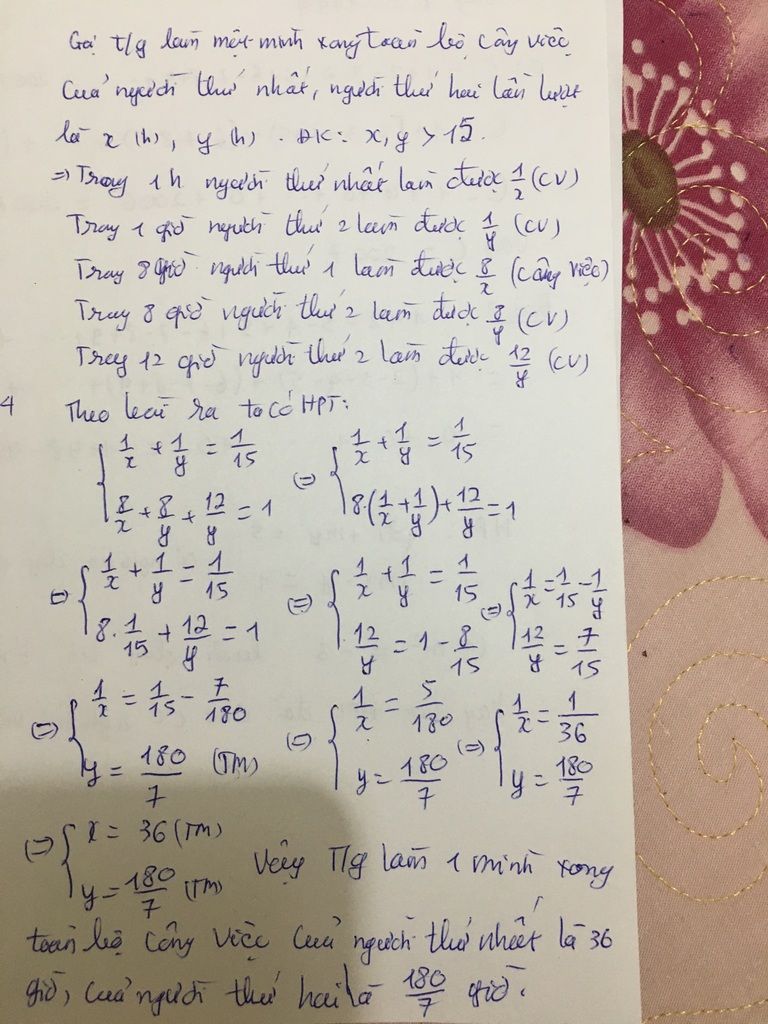 Gọi t/g làm một mình xong toàn bộ công việc
của người thứ nhất, người thứ hai lần lượt
là x (h), y (h). ĐK: x, y > 15.
=> Trong 1h người thứ nhất làm được 1/x (CV)
Trong 1 giờ người thứ 2 làm được 1/y (CV)
Trong 8 giờ người thứ 1 làm được 8/x (công việc)
Trong 8 giờ người thứ 2 làm được 8/y (CV)
Trong 12 giờ người thứ 2 làm được 12/y (CV)
4 Theo bài ra ta có HPT:
{ 1/x + 1/y = 1/15 ; 8/x + 8/y + 12/y = 1 (=) { 1/x + 1/y = 1/15 ; 8.(1/x + 1/y) + 12/y = 1
(=) { 1/x + 1/y = 1/15 ; 8.1/15 + 12/y = 1 (=) { 1/x + 1/y = 1/15 ; 12/y = 1 - 8/15 (=) { 1/x = 1/15 - 1/y ; 12/y = 7/15
(=) { 1/x = 1/15 - 7/180 ; y = 180/7 (TM) (=) { 1/x = 5/180 ; y = 180/7 (=) { 1/x = 1/36 ; y = 180/7
(=) { x = 36 (TM) ; y = 180/7 (TM) Vậy T/g làm 1 mình xong
toàn bộ công việc của người thứ nhất là 36
giờ, của người thứ hai là 180/7 giờ.